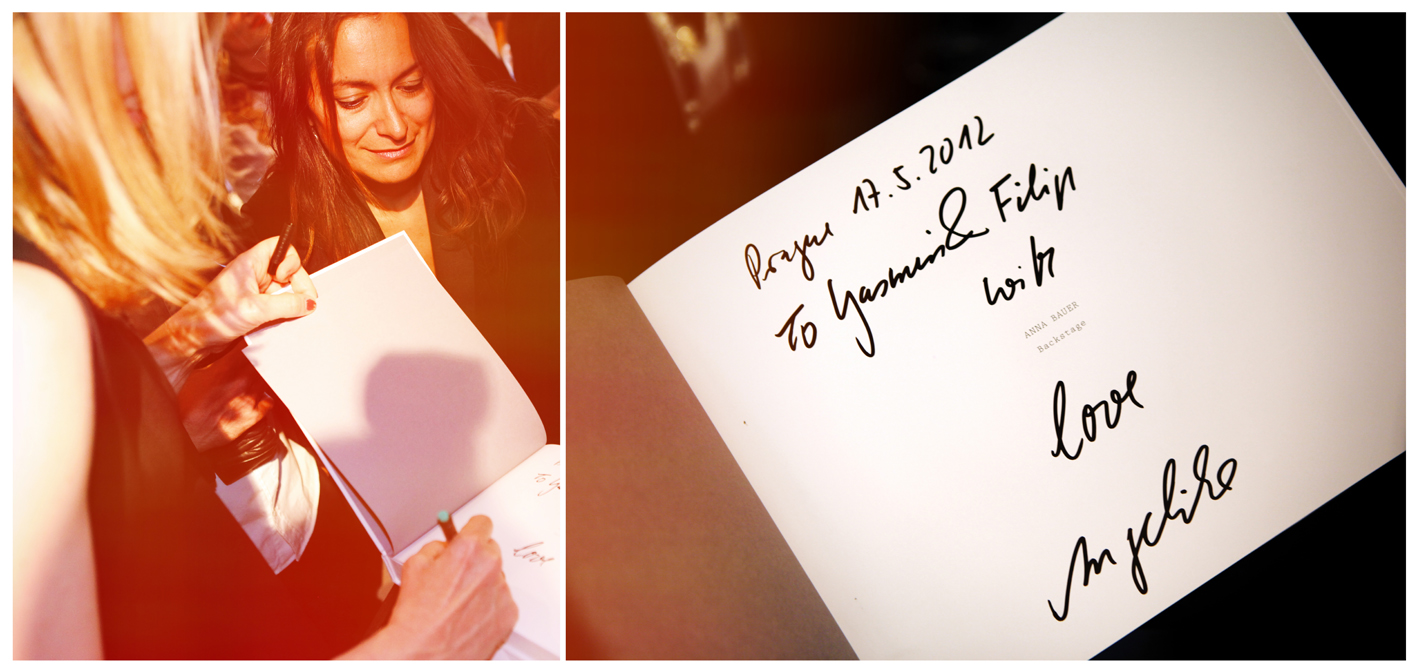 Prague 17.5.2012
To Yasmin & Filip
with
ANNA BAUER
Backstage
love
Angelika
To
love